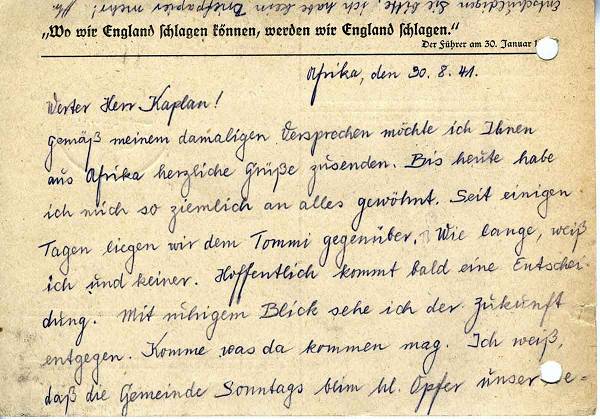 Entschuldigen Sie bitte, ich habe kein Briefpapier mehr!
„Wo wir England schlagen können, werden wir England schlagen.“
Der Führer am 30. Januar
Afrika, den 30. 8. 41.
Werter Herr Kaplan!
gemäß meinem damaligen Versprechen möchte ich Ihnen
aus Afrika herzliche Grüße zusenden. Bis heute habe
ich mich so ziemlich an alles gewöhnt. Seit einigen
Tagen liegen wir dem Tommi gegenüber. Wie lange, weiß
ich und keiner. Hoffentlich kommt bald eine Entschei-
dung. Mit ruhigem Blick sehe ich der Zukunft
entgegen. Komme was da kommen mag. Ich weiß,
daß die Gemeinde Sonntags beim hl. Opfer unser Ge-